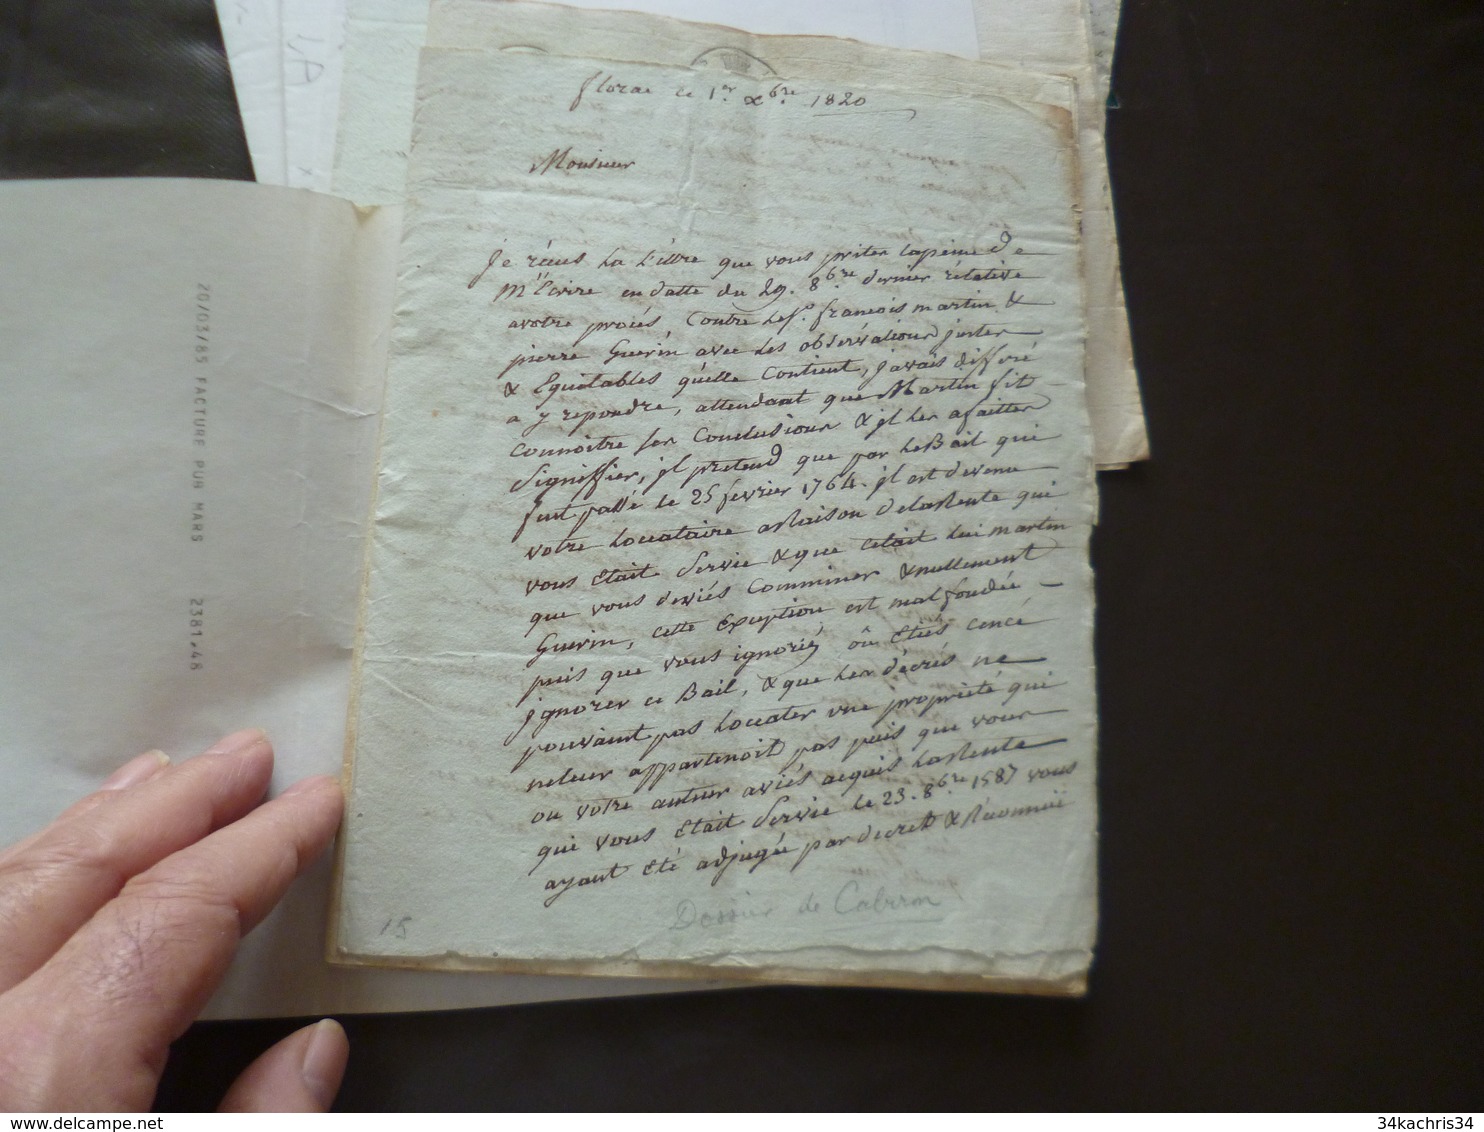 florac ce 1er xbre 1820
Monsieur
Je réçus la Lettre que vous prites lapeine de
m'Ecrire en datte du 29. 8bre dernier rélative
avotre procés, Contre les françois martin &
pierre Guérin avec les observations justes
& Equitables qu'elle Contient, j'avais différé
a y repondre, attendant que Martin fit
connoitre ses Conclusions & jl les afaittes
Signiffier, jl pretend que par le Bail qui
fut passé le 25 fevrier 1764. jl est devenu
votre Locataire a Raison de la Rente qui
vous était Servie & que cétait lui martin
que vous deviés comminer & nullement
Guerin, cette Exception est mal fondée
puis que vous ignoriés oû étiés cencé
jgnorer ce Bail, & que les décrés ne
pouvaint pas Locater une propriété qui
neleur appartenoit pas puis que vous
ou votre auteur aviés acquis la Rente
qui vous était Servie le 23. 8bre 1587 vous
ayant été adjugée par decret &
Dossier de Cabiron
15
20/03/85 FACTURE PUB MARS 2381,46
LA
34kachris34